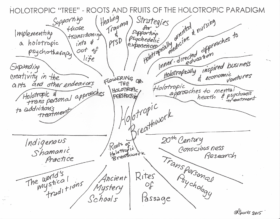 HOLOTROPIC "TREE" - ROOTS AND FRUITS OF THE HOLOTROPIC PARADIGM
Implementing
a holotropic
psychotherapy
Supporting
those
transitioning
into &
out of
life
Healing
Trauma &
PTSD
Strategies
for
supporting
psychedelic
experiences
Holotropically oriented
medicine & nursing
Inner-directed approaches to
Holotropically inspired business
& economic
structures
Holotropic
approaches to mental
health & psychiatric
treatment
Expanding
creativity in the
arts and other endeavors
Holotropic &
transpersonal approaches
to addictions
treatment
FLOWERING OF
THE HOLOTROPIC
PARADIGM
Holotropic
Breathwork
Roots of
Holotropic
Breathwork
Indigenous
Shamanic
Practice
The world's
mystical
traditions
Ancient
Mystery
Schools
Rites
of
Passage
Transpersonal
Psychology
20th Century
Consciousness
Research
2015